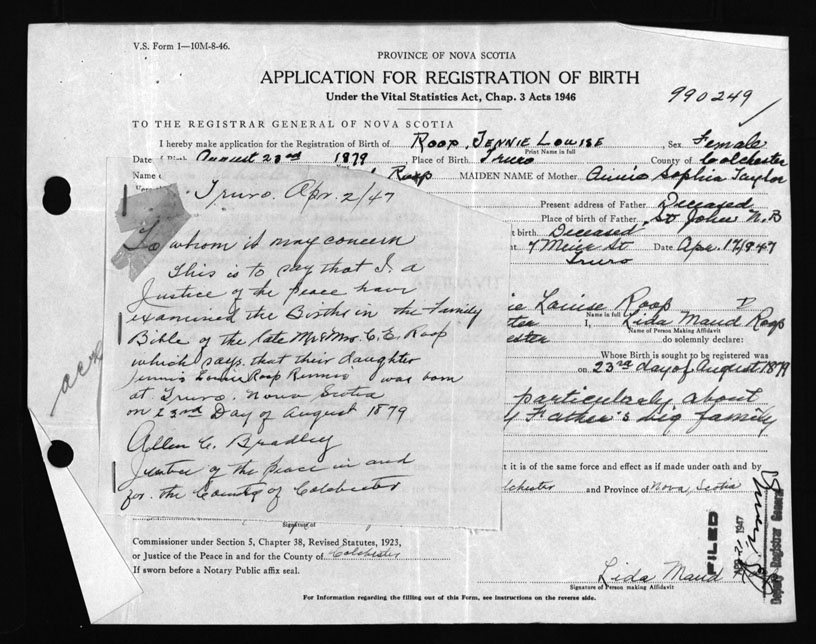 V.S. Form 1—10M-8-46.
PROVINCE OF NOVA SCOTIA
APPLICATION FOR REGISTRATION OF BIRTH
Under the Vital Statistics Act, Chap. 3 Acts 1946
990249
TO THE REGISTRAR GENERAL OF NOVA SCOTIA
I hereby make application for the Registration of Birth of ROOP, JENNIE LOUISE, Sex Female
Print Name in full
Date August 23rd 1879, Place of Birth Truro County of Colchester
Name Roop MAIDEN NAME of Mother Annie Sophia Taylor
Present address of Father Deceased
Place of birth of Father St John N.B
birth Deceased
7 Muir St Date Apr. 17/947
Truro
Louise Roop
Name in full
I, Lida Maud Roop
Name of Person Making Affidavit
do solemnly declare:
Whose Birth is sought to be registered was
on 23rd day of August 1879
particularly about
Father's big family
it is of the same force and effect as if made under oath and by
and Province of Nova, Scotia
Truro. Apr. 2/47
To whom it may concern
This is to say that I, a
Justice of the Peace have
examined the Births in the Family
Bible of the late Mr & Mrs. C. E. Roop
which says that their daughter
Jennie Louise Roop Rennie was born
at Truro. Nova Scotia
on 23rd Day of August 1879
Allen C. Bradley
Justice of the Peace in and
for the County of Colchester
Signature of
Commissioner under Section 5, Chapter 38, Revised Statutes, 1923,
or Justice of the Peace in and for the County of Colchester
If sworn before a Notary Public affix seal.
FILED
1947
Deputy Registrar General
Lida Maud
Signature of Person making Affidavit
For Information regarding the filling out of this Form, see instructions on the reverse side.